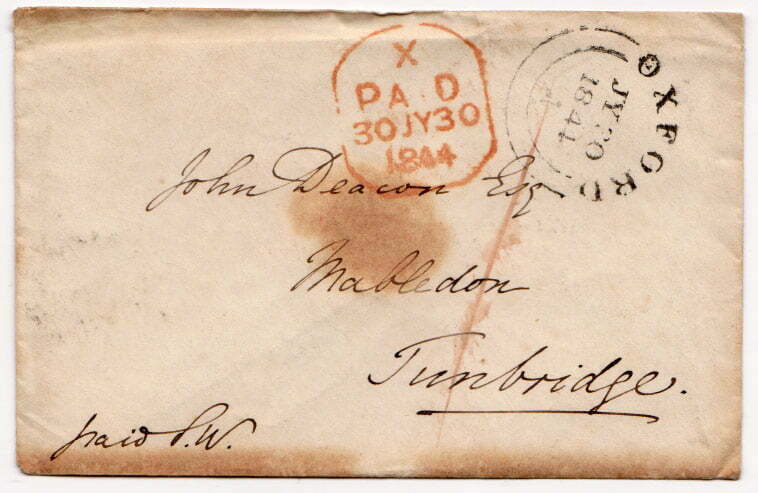 X
PAID
30JY30
1844
OXFORD
JY30
1844
John Deacon Esq
Mabledon
Tunbridge.
paid S.W.